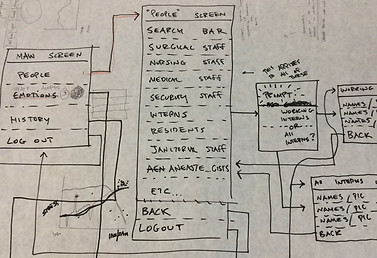 MAIN SCREEN
PEOPLE
EMOTIONS
HISTORY
LOG OUT
"PEOPLE" SCREEN
SEARCH BAR
SURGICAL STAFF
NURSING STAFF
MEDICAL STAFF
SECURITY STAFF
INTERNS
RESIDENTS
JANITORIAL STAFF
ETC...
BACK
LOGOUT
THIS APPLIES
TO ALL OF
THESE
PROMPT:
WORKING
INTERNS
OR
ALL
INTERNS?
WORKING
NAMES/
NAMES/
BACK
ALL INTERNS
NAMES/PIC
NAMES/PIC
NAMES/PIC
BACK